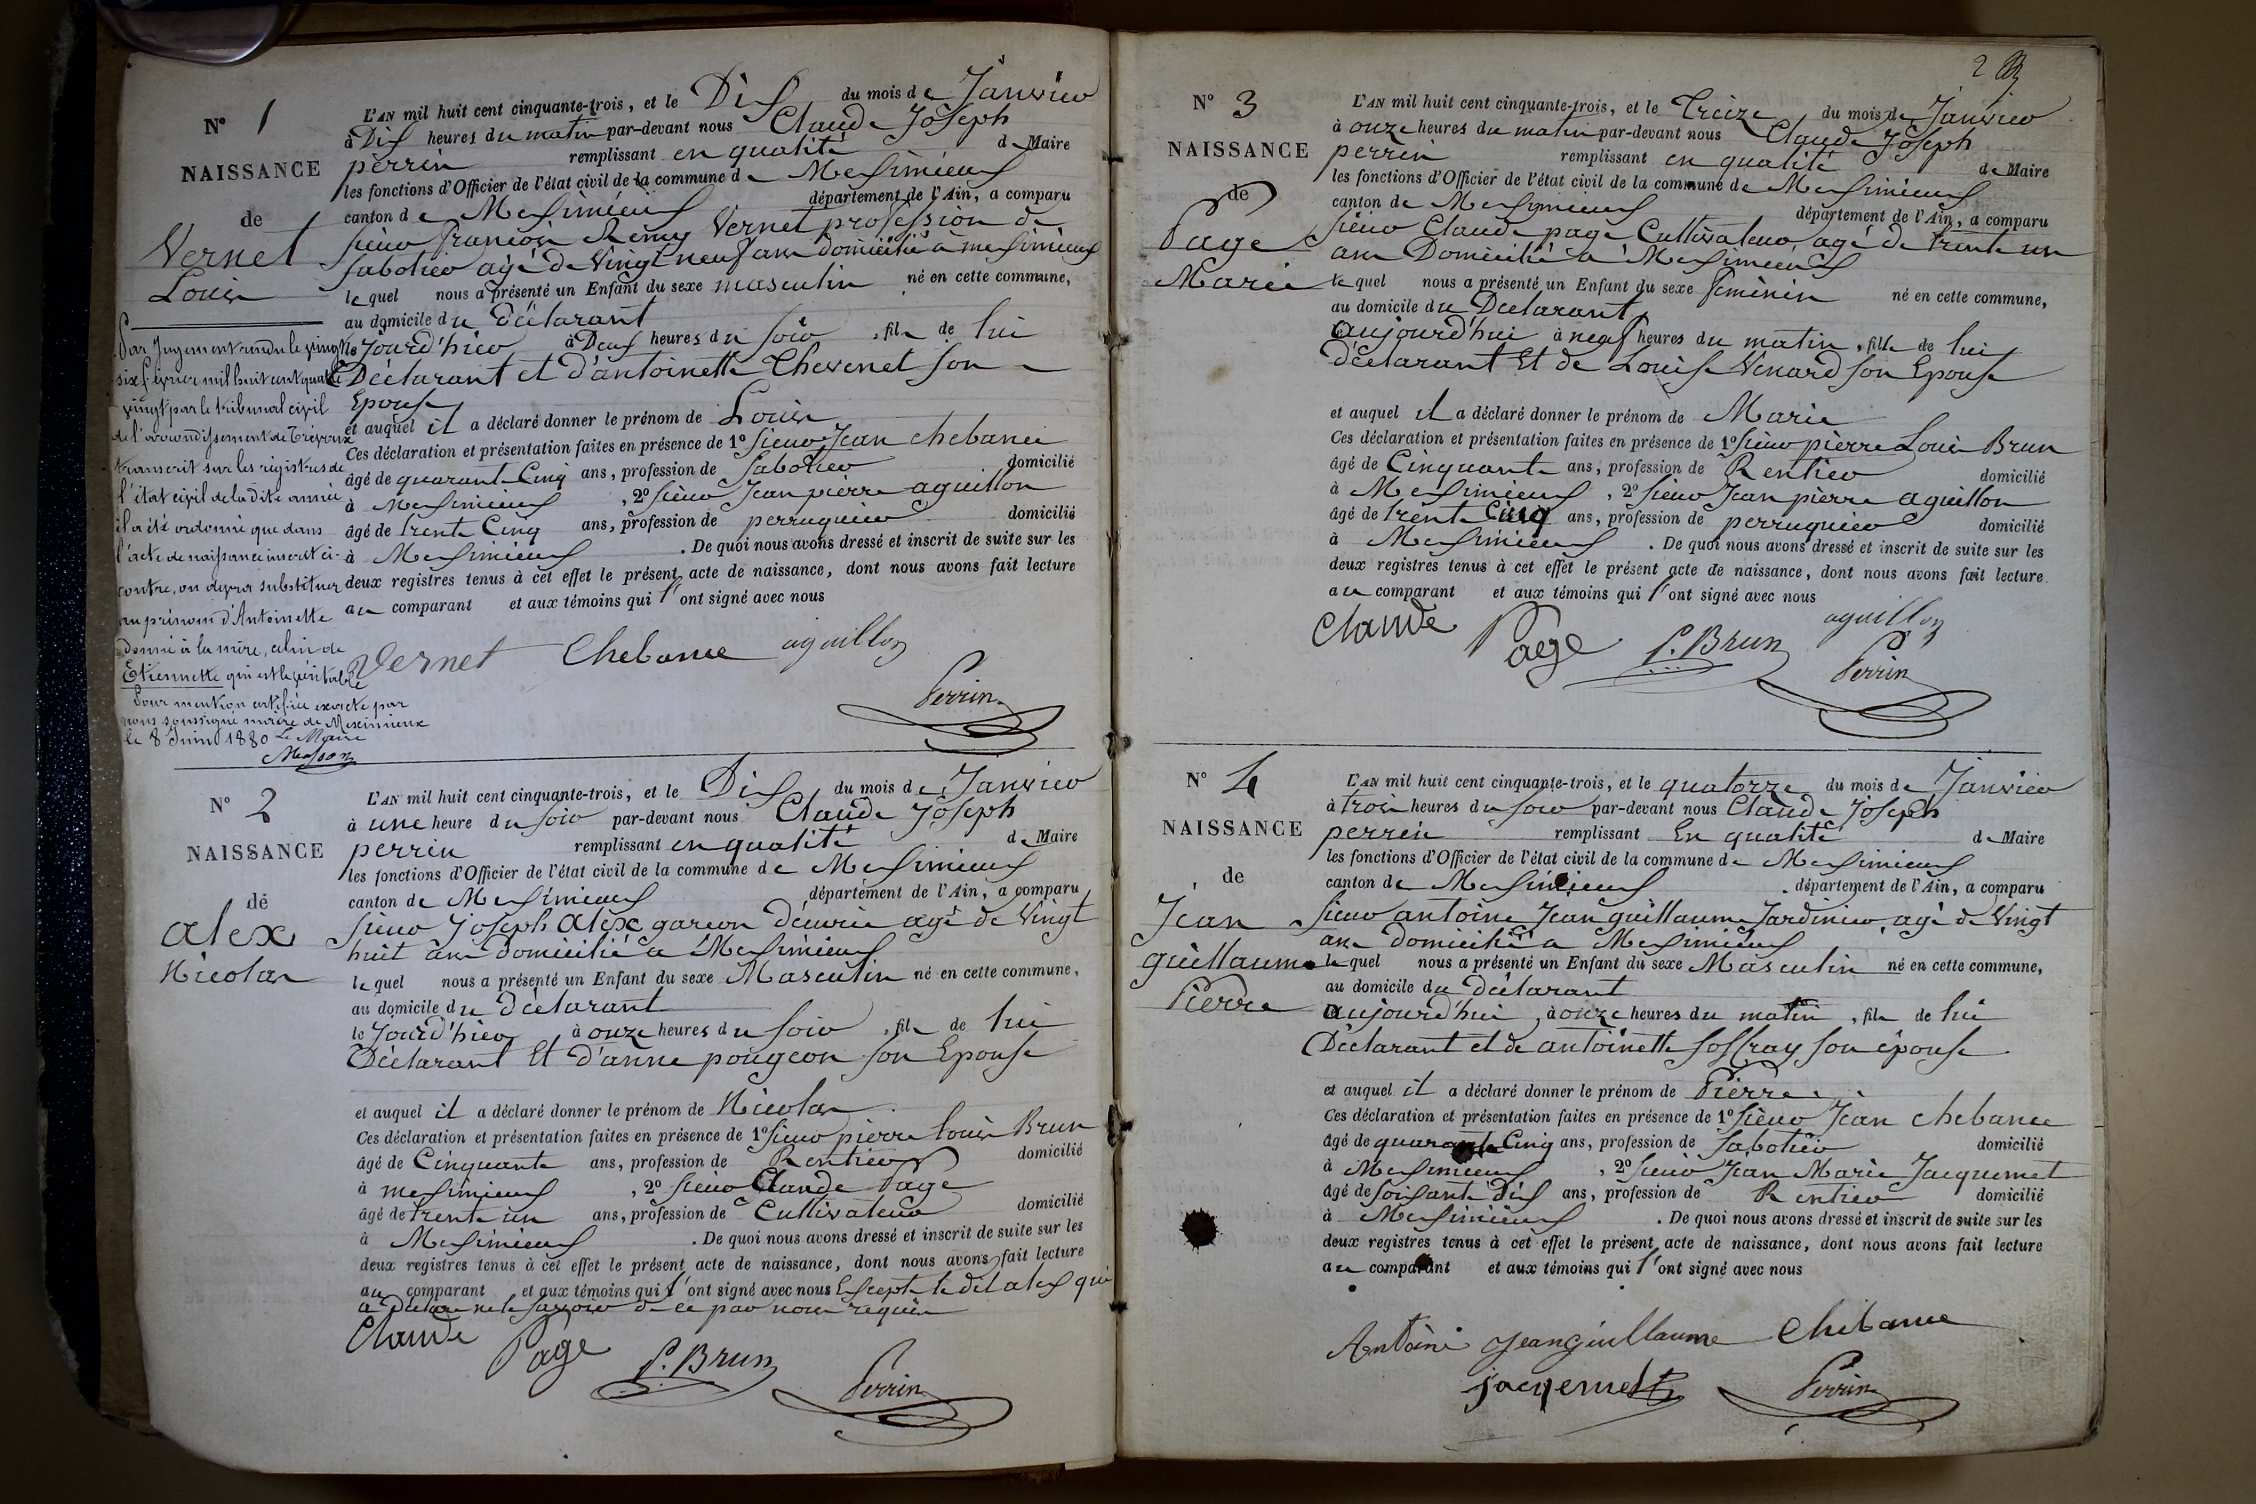 N° 1
NAISSANCE
de
Vernet
Louis
L'AN mil huit cent cinquante-trois, et le Dix du mois de Janvier
à Dix heures du matin par-devant nous Claude Joseph
perrin remplissant en qualité de Maire
les fonctions d'Officier de l'état civil de la commune de Meximieux
canton de Meximieux département de l'Ain, a comparu
sieur françois Rémy Vernet profession de
sabotier agé de Vingt neuf ans domicilié à meximieux
lequel nous a présenté un Enfant du sexe masculin né en cette commune,
au domicile du Déclarant
le jourd'hier à Deux heures du soir, fils de lui
Déclarant et d'antoinette Chevenet son
Epouse
et auquel il a déclaré donner le prénom de Louis
Ces déclaration et présentation faites en présence de 1° sieur Jean chebance
âgé de quarante Cinq ans, profession de sabotier domicilié
à Meximieux, 2° sieur Jean pierre aguillon
âgé de trente Cinq ans, profession de perruquier domicilié
à Meximieux. De quoi nous avons dressé et inscrit de suite sur les
deux registres tenus à cet effet le présent acte de naissance, dont nous avons fait lecture
au comparant et aux témoins qui l'ont signé avec nous
Vernet Chebance aguillon
Perrin
Par Jugement rendu le vingt
six février mil huit cent quatre
vingt par le tribunal civil
de l'arrondissement de Trévoux
transcrit sur les registres de
l'état civil de la dite année
il a été ordonné que dans
l'acte de naissance inscrit ci-
contre, on devra substituer
au prénom d'Antoinette
donné à la mère, celui de
Etiennette qui est le véritable
Pour mention certifiée exacte par
nous soussigné maire de Meximieux
le 8 Juin 1880 Le Maire
Masson
N° 2
NAISSANCE
de
alex
Nicolas
L'AN mil huit cent cinquante-trois, et le Dix du mois de Janvier
à une heure du soir par-devant nous Claude Joseph
perrin remplissant en qualité de Maire
les fonctions d'Officier de l'état civil de la commune de Meximieux
canton de Meximieux département de l'Ain, a comparu
sieur Joseph alex garçon d'écurie agé de Vingt
huit ans Domicilié à Meximieux
lequel nous a présenté un Enfant du sexe Masculin né en cette commune,
au domicile du Déclarant
le Jourd'hier à onze heures du soir, fils de lui
Déclarant Et d'anne pougeon son Epouse
et auquel il a déclaré donner le prénom de Nicolas
Ces déclaration et présentation faites en présence de 1° sieur pierre louis Brun
âgé de Cinquante ans, profession de Rentier domicilié
à meximieux, 2° sieur Claude Page
âgé de trente un ans, profession de Cultivateur domicilié
à Meximieux. De quoi nous avons dressé et inscrit de suite sur les
deux registres tenus à cet effet le présent acte de naissance, dont nous avons fait lecture
au comparant et aux témoins qui l'ont signé avec nous Excepté le dit alex qui
a Déclaré ne le savoir de ce par nous requis
Claude Page P. Brun Perrin
2
N° 3
NAISSANCE
de
Page
Marie
L'AN mil huit cent cinquante-trois, et le Treize du mois de Janvier
à onze heures du matin par-devant nous Claude Joseph
perrin remplissant en qualité de Maire
les fonctions d'Officier de l'état civil de la commune de Meximieux
canton de Meximieux département de l'Ain, a comparu
sieur Claude page Cultivateur agé de trente un
ans Domicilié à Meximieux
lequel nous a présenté un Enfant du sexe feminin né en cette commune,
au domicile du Declarant
aujourd'hui à neuf heures du matin, fille de lui
déclarant Et de Louise Venard son Epouse
et auquel il a déclaré donner le prénom de Marie
Ces déclaration et présentation faites en présence de 1° sieur pierre Louis Brun
âgé de Cinquante ans, profession de Rentier domicilié
à Meximieux, 2° sieur Jean pierre aguillon
âgé de trente Cinq ans, profession de perruquier domicilié
à Meximieux. De quoi nous avons dressé et inscrit de suite sur les
deux registres tenus à cet effet le présent acte de naissance, dont nous avons fait lecture
au comparant et aux témoins qui l'ont signé avec nous
Claude Page P. Brun aguillon
Perrin
N° 4
NAISSANCE
de
Jean
guillaume
Pierre
L'AN mil huit cent cinquante-trois, et le quatorze du mois de Janvier
à trois heures du soir par-devant nous Claude Joseph
perrin remplissant En qualité de Maire
les fonctions d'Officier de l'état civil de la commune de Meximieux
canton de Meximieux département de l'Ain, a comparu
sieur antoine Jean guillaume Jardinier, agé de Vingt
ans domicilié à Meximieux
lequel nous a présenté un Enfant du sexe Masculin né en cette commune,
au domicile du Déclarant
aujourd'hui, à onze heures du matin, fils de lui
Déclarant et de antoinette soffray son épouse
et auquel il a déclaré donner le prénom de Pierre
Ces déclaration et présentation faites en présence de 1° sieur Jean chebance
âgé de quarante Cinq ans, profession de sabotier domicilié
à Meximieux, 2° sieur Jean Marie Jacquemet
âgé de soixante Dix ans, profession de Rentier domicilié
à Meximieux. De quoi nous avons dressé et inscrit de suite sur les
deux registres tenus à cet effet le présent acte de naissance, dont nous avons fait lecture
au comparant et aux témoins qui l'ont signé avec nous
Antoine Jeanguillaume Chebance
jacqemet Perrin